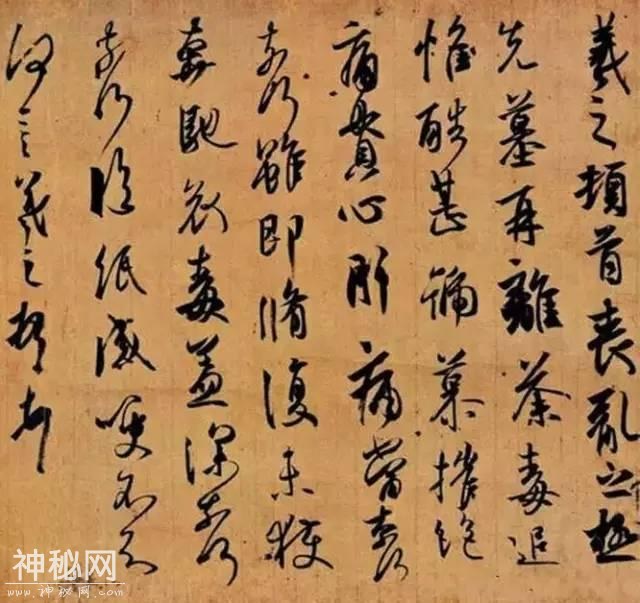 羲之頓首喪亂之極
先墓再離荼毒追
惟酷甚號慕摧絕
痛貫心肝痛當奈何
奈何雖即脩復未獲
奔馳哀毒益深奈何
奈何臨紙感哽不知
何言羲之頓首頓首
神秘网
www.神秘网.com